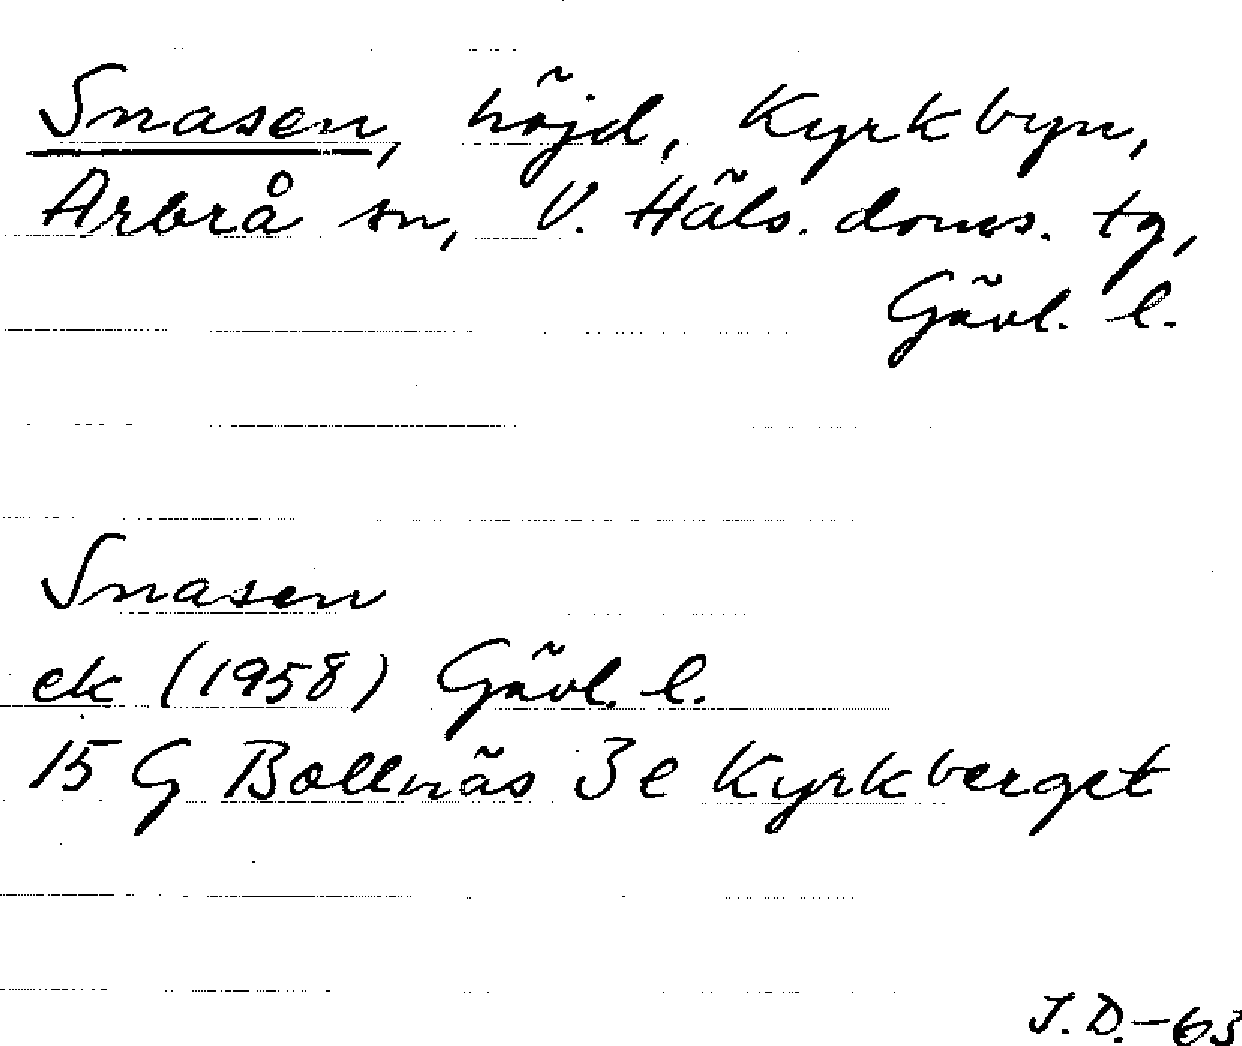 Snasen, höjd, Kyrkbyn,
Arbrå sn, V. Häls. doms. tg,
Gävl. l.
Snasen
ek (1958) Gävl. l.
15 G Bollnäs 3 e Kyrkberget
J.D.-63